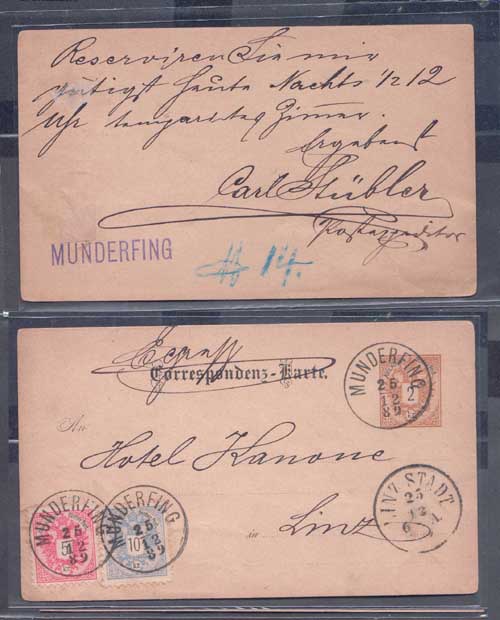 Reserviren Sie mir
gütigst heute Nachts 1/2 12
Uhr Zimmer.
Ergebenst
Carl Stübler
Postexpeditor
MUNDERFING
# 14.
Express
Correspondenz-Karte.
MUNDERFING
25
12
89
2
An
Hotel Kanone
in Linz
LINZ STADT
25
12
6
MUNDERFING
25
12
89
5
MUNDERFING
25
12
89
10